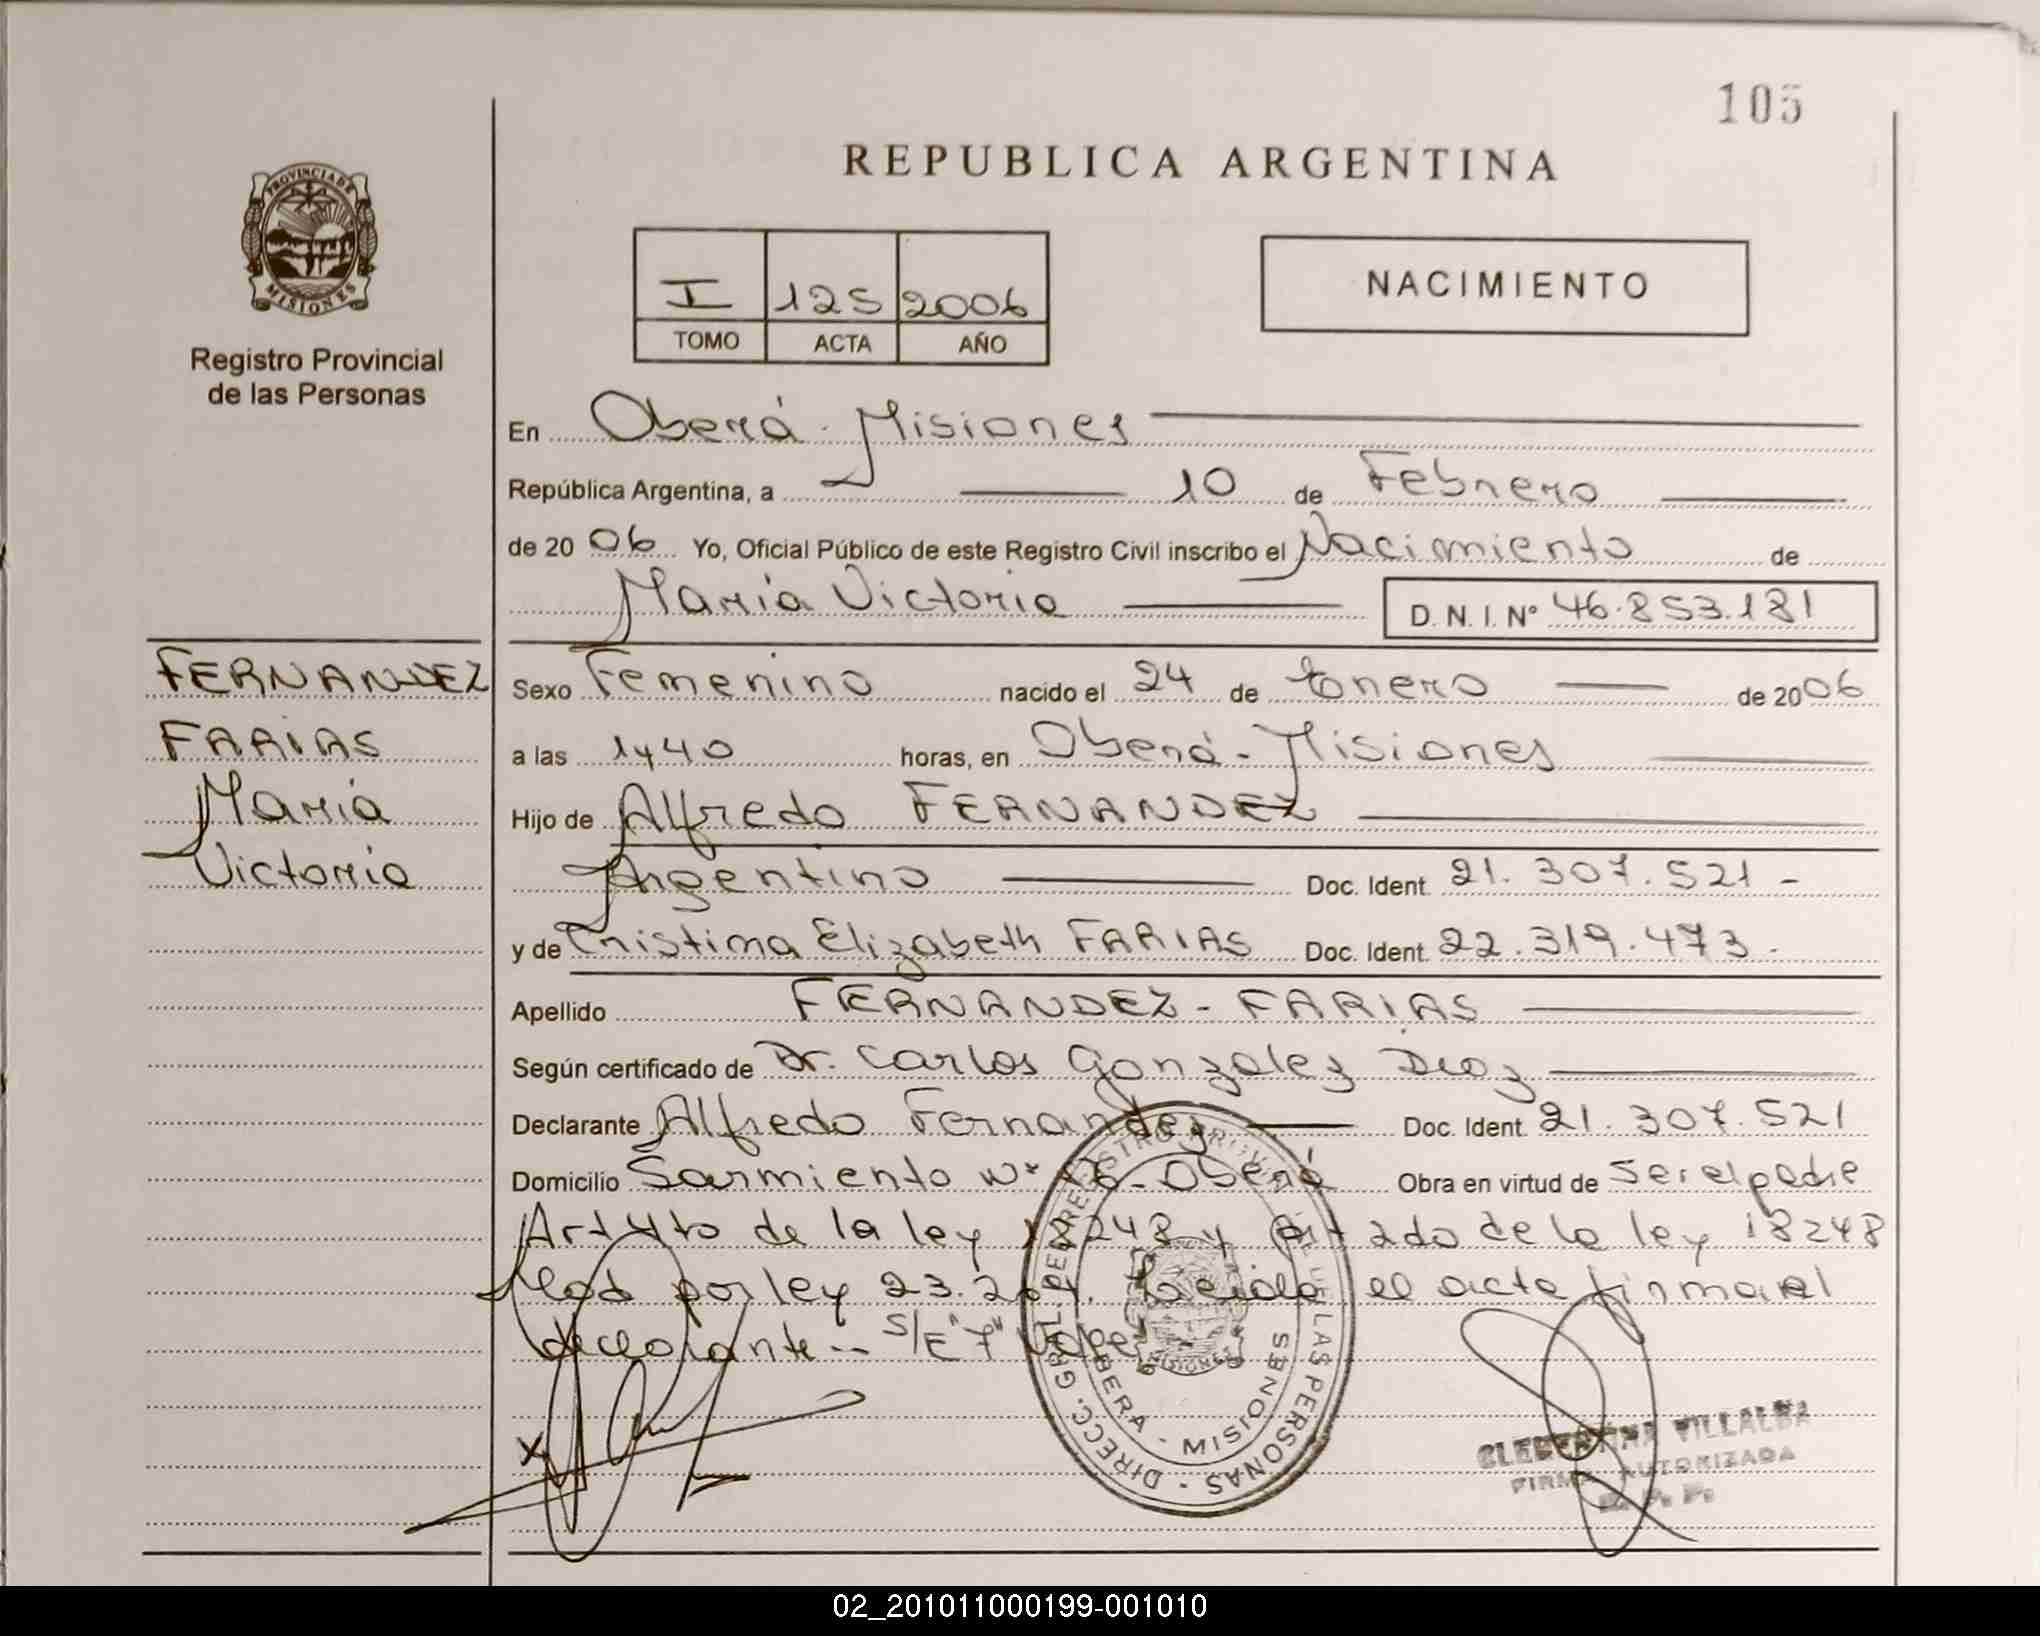 105
REPUBLICA ARGENTINA
PROVINCIA DE
MISIONES
Registro Provincial
de las Personas
I 125 2006
TOMO ACTA AÑO
NACIMIENTO
En Oberá - Misiones
República Argentina, a 10 de Febrero
de 20 06 Yo, Oficial Público de este Registro Civil inscribo el Nacimiento de
María Victoria D.N.I. Nº 46.853.181
FERNANDEZ
FARIAS
María
Victoria
Sexo Femenino nacido el 24 de Enero de 2006
a las 1440 horas, en Oberá - Misiones
Hijo de Alfredo FERNANDEZ
Argentino Doc. Ident. 21.307.521 -
y de Cristina Elizabeth FARIAS Doc. Ident. 22.319.473 -
Apellido FERNANDEZ - FARIAS
Según certificado de Dr. Carlos Gonzalez Diaz
Declarante Alfredo Fernandez Doc. Ident. 21.307.521
Domicilio Sarmiento Nº - Oberá Obra en virtud de Ser el padre
Art 4to de la ley 18248 y de la ley 18248
Mod por ley 23.264. el acta firma el
declarante -- S/E "7" Vale
DIRECC. GRAL. DEL REGISTRO PROVINCIAL DE LAS PERSONAS
OBERA - MISIONES
MISIONES
VILLALBA
FIRMA AUTORIZADA
R. P. P.
02_201011000199-001010